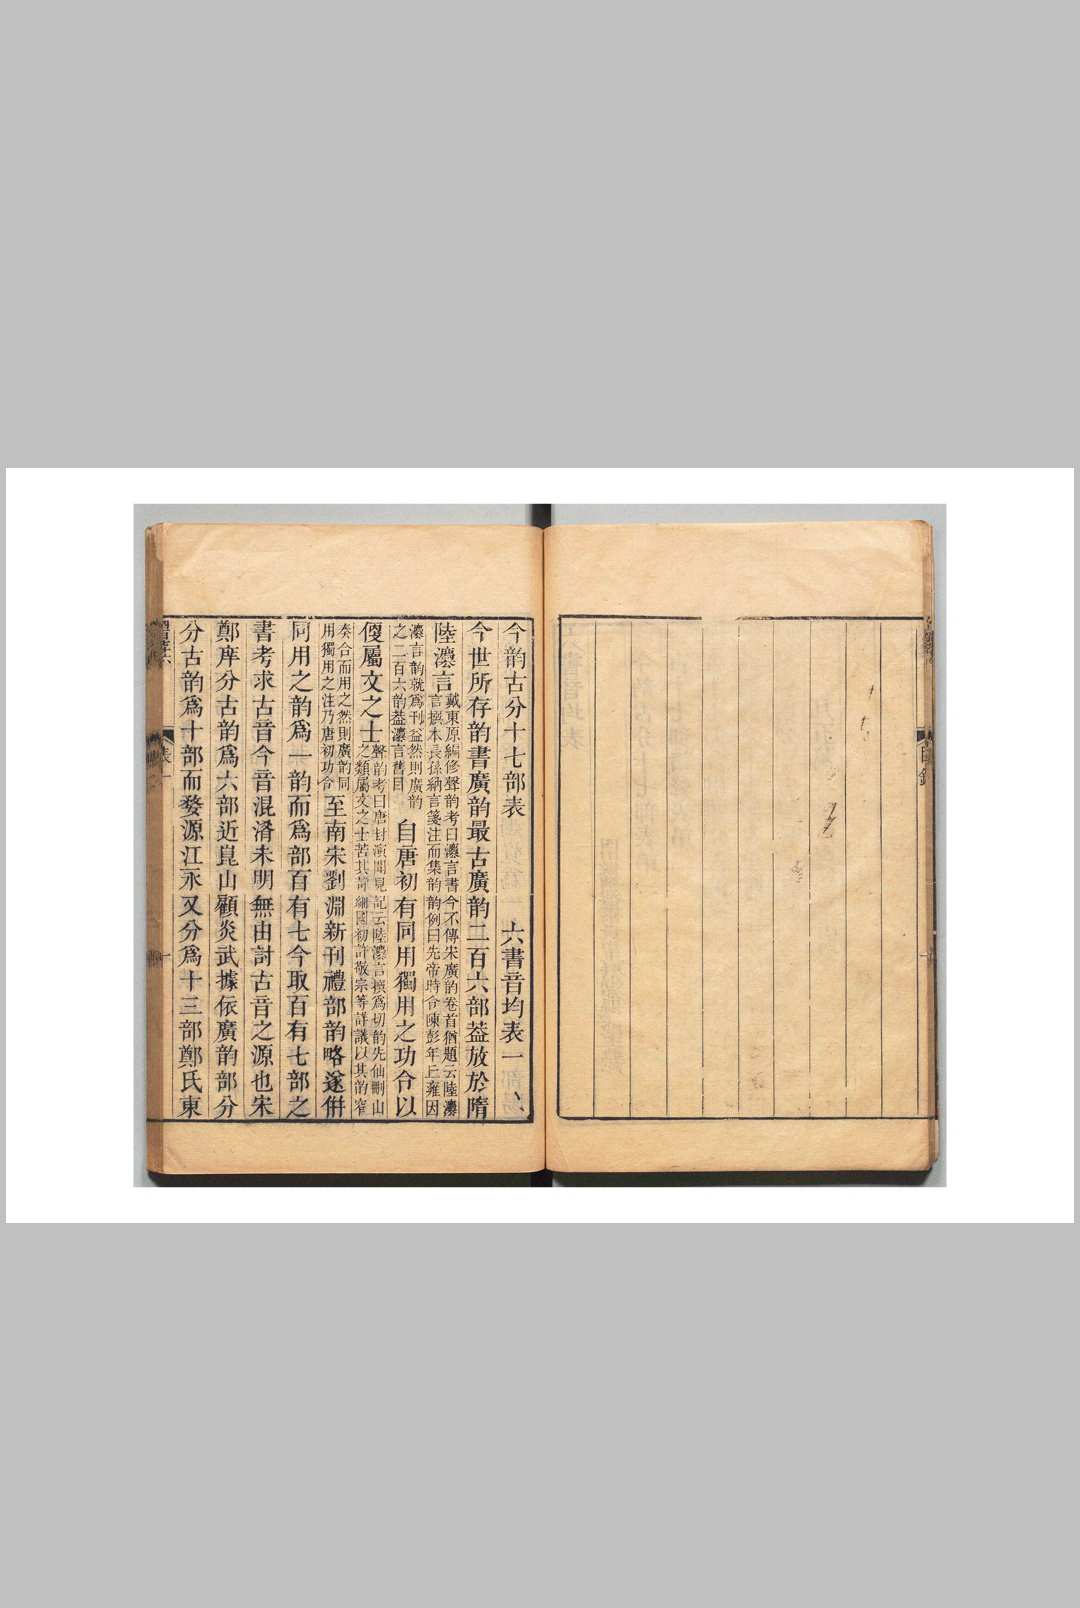 今韵古分十七部表　六書音均表一
今世所存韵書廣韵最古廣韵二百六部葢放於隋
陸灋言戴東原編修聲韵考曰灋言書今不傳宋廣韵卷首猶題云陸灋
言撰本長孫納言箋注而集韵韵例曰先帝時令陳彭年丘雍因
灋言韵就爲刊益然則廣韵
之二百六韵葢灋言舊目自唐初有同用獨用之功令以
便屬文之士聲韵考曰唐封演聞見記云陸灋言撰爲切韵先仙刪山
之類屬文之士苦其苛細國初許敬宗等詳議以其韵窄
奏合而用之然則廣韵同
用獨用之注乃唐初功令至南宋劉淵新刊禮部韵略遂併
同用之韵爲一韵而爲部百有七今取百有七部之
書考求古音今音混淆未明無由討古音之源也宋
鄭庠分古韵爲六部近崑山顧炎武據依廣韵部分
分古韵爲十部而婺源江永又分爲十三部鄭氏東
表一
目錄